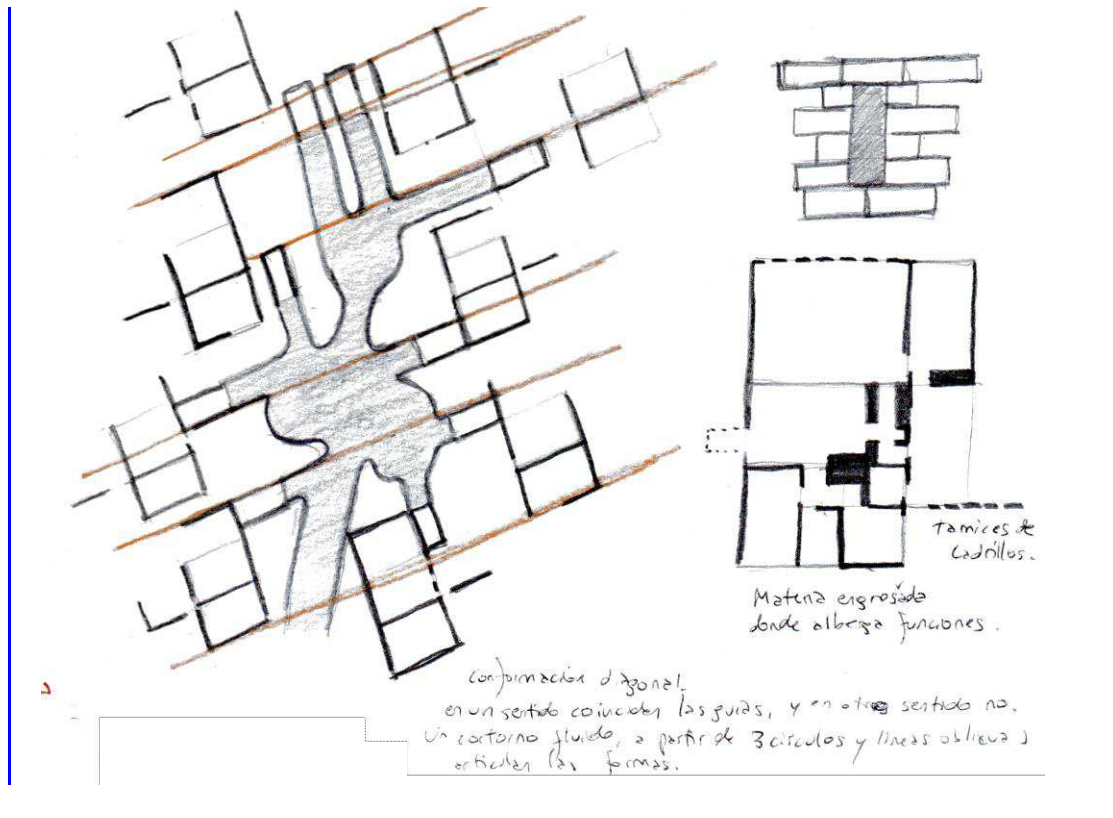 tamices de
Ladrillos.
Materia engrosada
donde alberga funciones.
conformación diagonal.
en un sentido coinciden las guías, y en otro sentido no.
Un contorno fluido, a partir de 3 círculos y líneas oblicuas
articulan las formas.